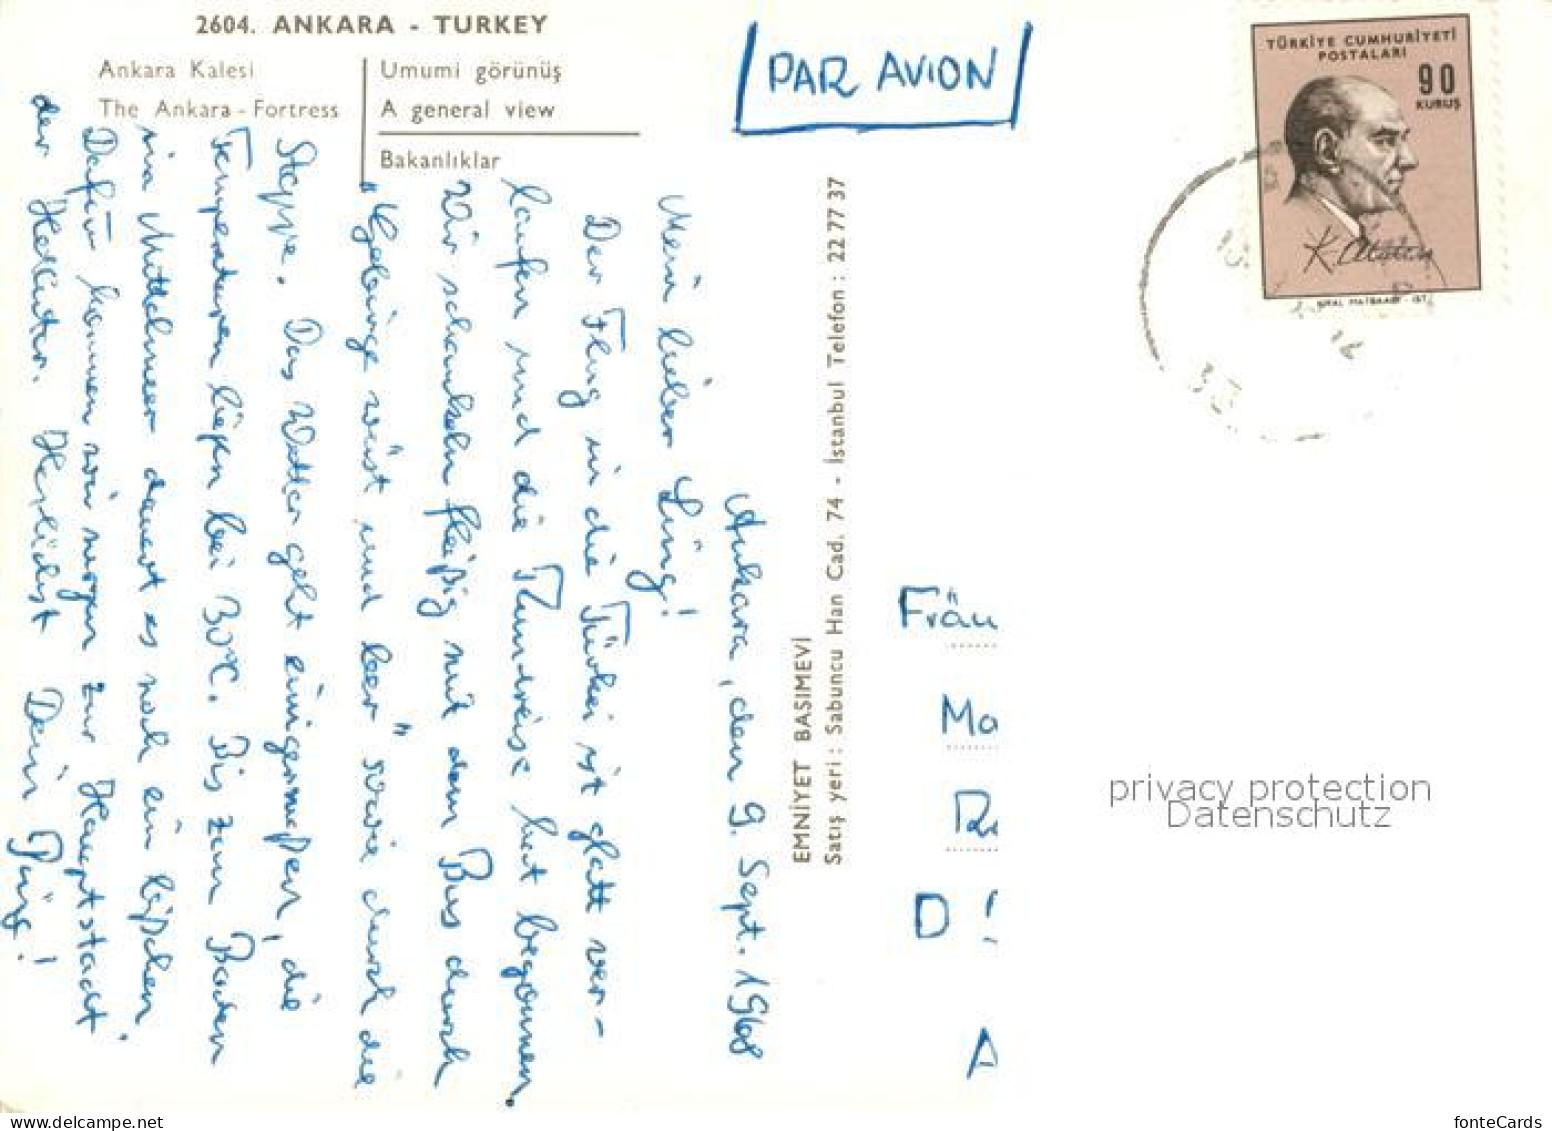 2604. ANKARA - TURKEY
Ankara Kalesi
The Ankara - Fortress
Umumi görünüş
A general view
Bakanlıklar
PAR AVION
TÜRKİYE CUMHURİYETİ
POSTALARI
90
KURUŞ
K. Atatürk
Ankara, den 9. Sept. 1968
Mein lieber Ling!
Der Flug in die Türkei ist glatt ver-
laufen und die Rundreise hat begonnen.
Wir schaukeln fleißig mit dem Bus durch
"Gebirge wüst und leer" sowie durch die
Steppe. Das Wetter geht einigermaßen, die
Temperaturen liegen bei 30°C. Bis zum Baden
im Mittelmeer dauert es noch ein bißchen.
Dafür kommen wir morgen zur Hauptstadt
der Hethiter. Herzlichst Dein
EMNİYET BASIMEVİ
Satış yeri : Sabuncu Han Cad. 74 - İstanbul Telefon : 22 77 37
Fräu
Ma
D
A
privacy protection
Datenschutz
fonteCards